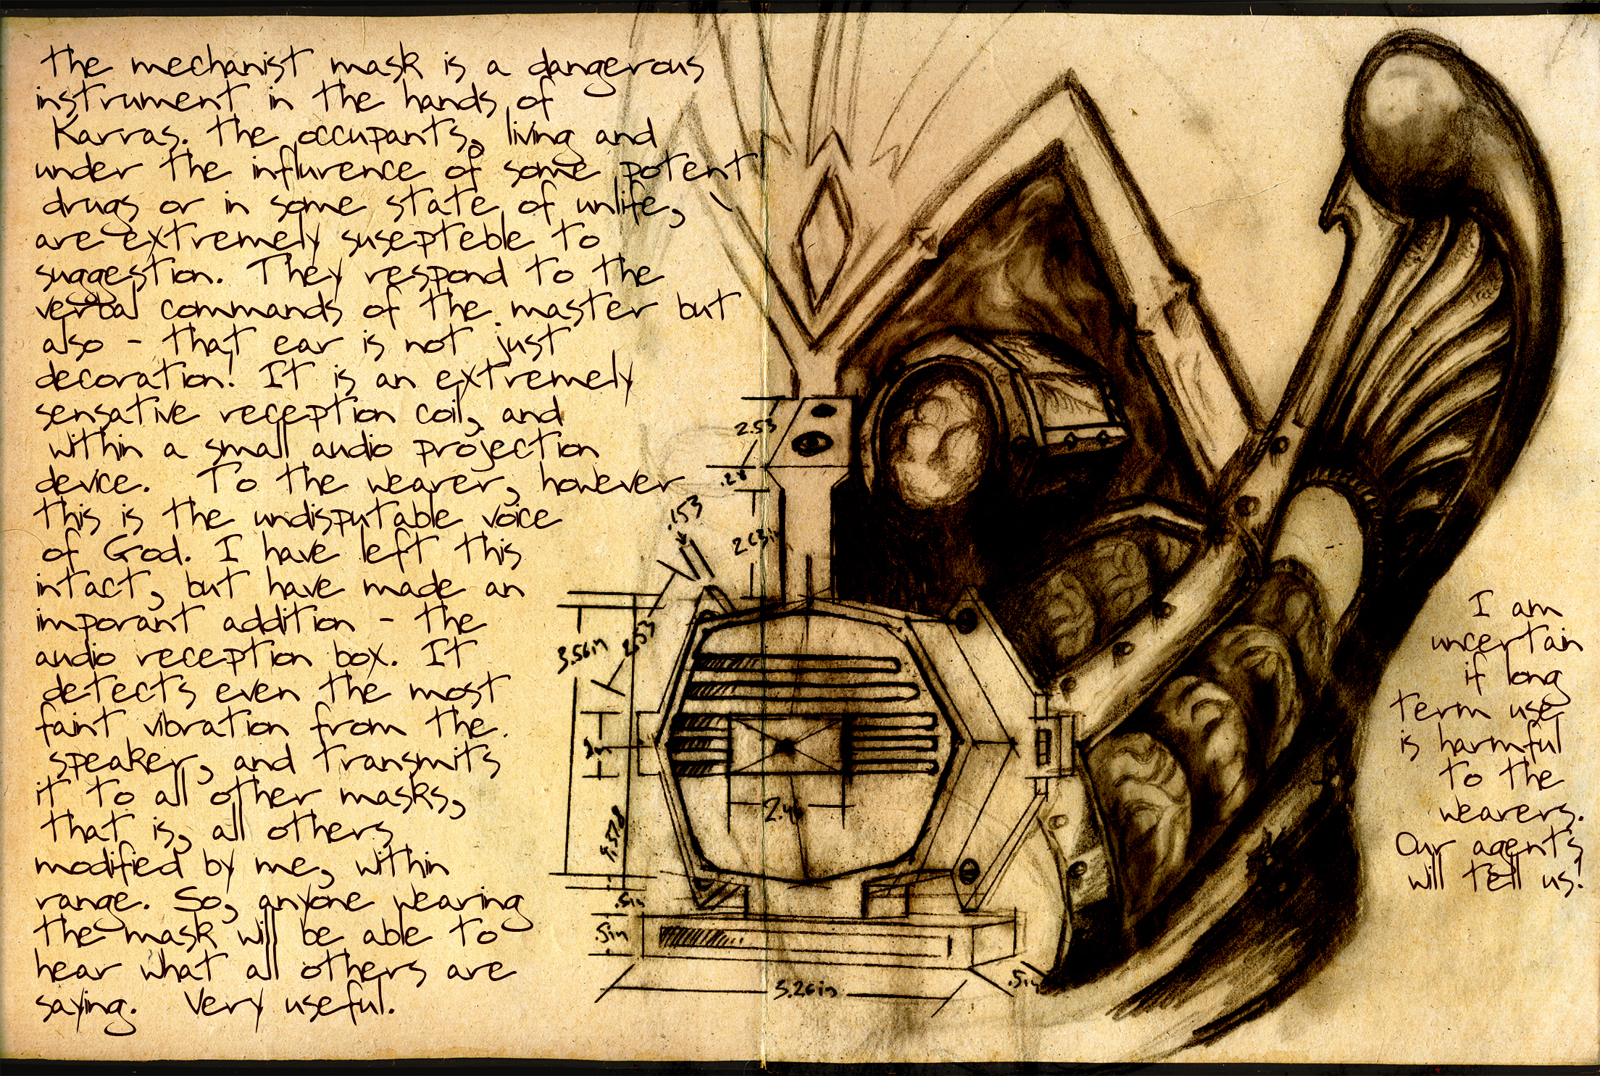 the mechanist mask is a dangerous
instrument in the hands of
Karras. the occupants, living and
under the inflурence of some potent
drugs or in some state of unlife,
are extremely susepteble to
suggestion. They respond to the
verbal commands of the master but
also - that ear is not just
decoration! It is an extremely
sensative reception coil, and
within a small audio projection
device. To the wearer, however
this is the undisputable voice
of God. I have left this
intact, but have made an
imporant addition - the
audio reception box. It
detects even the most
faint vibration from the
speaker, and transmits
it to all other masks,
that is, all others
modified by me, within
range. So, anyone wearing
the mask will be able to
hear what all others are
saying. Very useful.
2.53
.28
.153
2.53
3.56in
2.46
.5in
.5in
5.26in
.5in
I am
uncertain
if long
term use
is harmful
to the
wearers.
Our agents
will tell us!